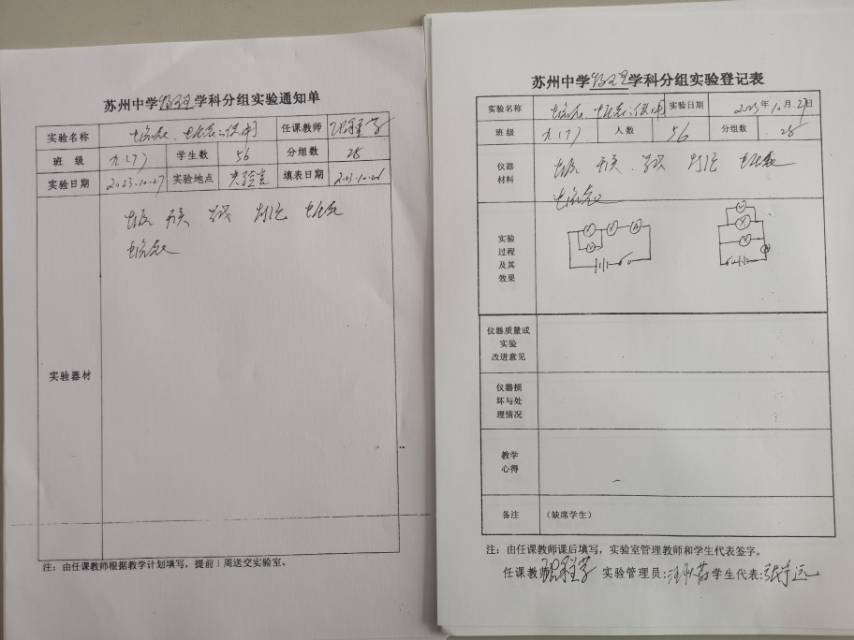 苏州中学物理学科分组实验通知单
实验名称 电流表、电压表的使用 任课教师
班 级 九(7) 学生数 56 分组数 28
实验日期 2023.10.27 实验地点 实验室 填表日期 2023.10.26
电源 开关 导线 灯泡 电压表
电流表
实验器材
注：由任课教师根据教学计划填写，提前1周送交实验室。
苏州中学物理学科分组实验登记表
实验名称 电流表、电压表的使用 实验日期 2023年10月27日
班 级 九(7) 人数 56 分组数 28
仪器
材料
电源 开关 导线 灯泡 电压表
电流表
实验
过程
及其
效果
仪器质量或
实验
改进意见
仪器损
坏与处
理情况
教学
心得
备注 （缺席学生）
注：由任课教师课后填写，实验室管理教师和学生代表签字。
任课教师 实验管理员： 学生代表：